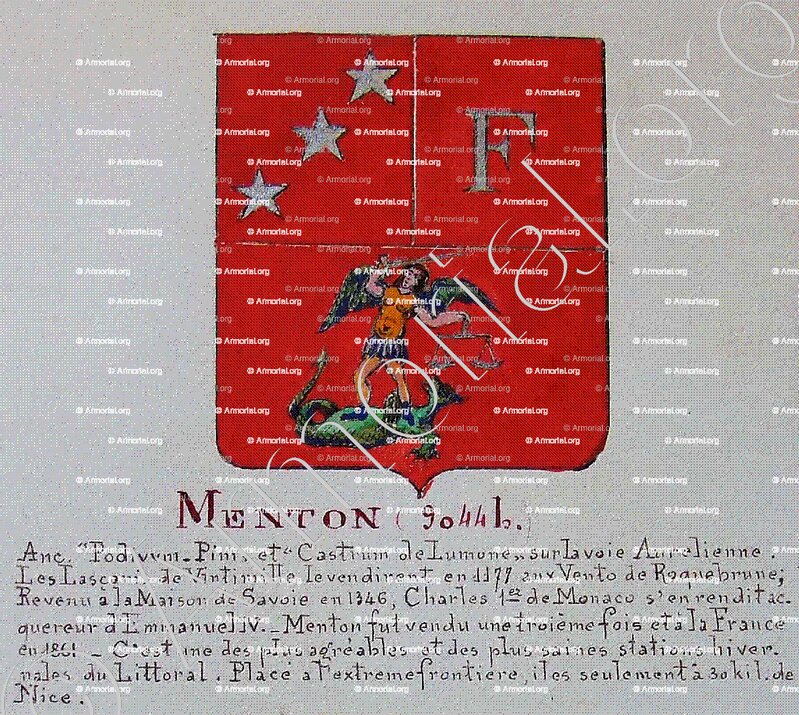 F
MENTON (9044 h.)
Anc. "Podivvm-Pini, et "Castrum de Lumone,, sur la voie Aurelienne.
Les Lascaris de Vintimille le vendirent en 1177 aux Vento de Roquebrune;
Revenu à la Maison de Savoie en 1346, Charles 1er de Monaco s'en rendit ac-
quereur d'Emmanuel IV. _ Menton fut vendu une troième fois et à la France
en 1861 _ C'est une des plus agréables et des plus saines stations hiver-
nales du Littoral. Placé à l'extreme frontière, il es seulement à 30 kil. de
Nice.
© Armorial.org